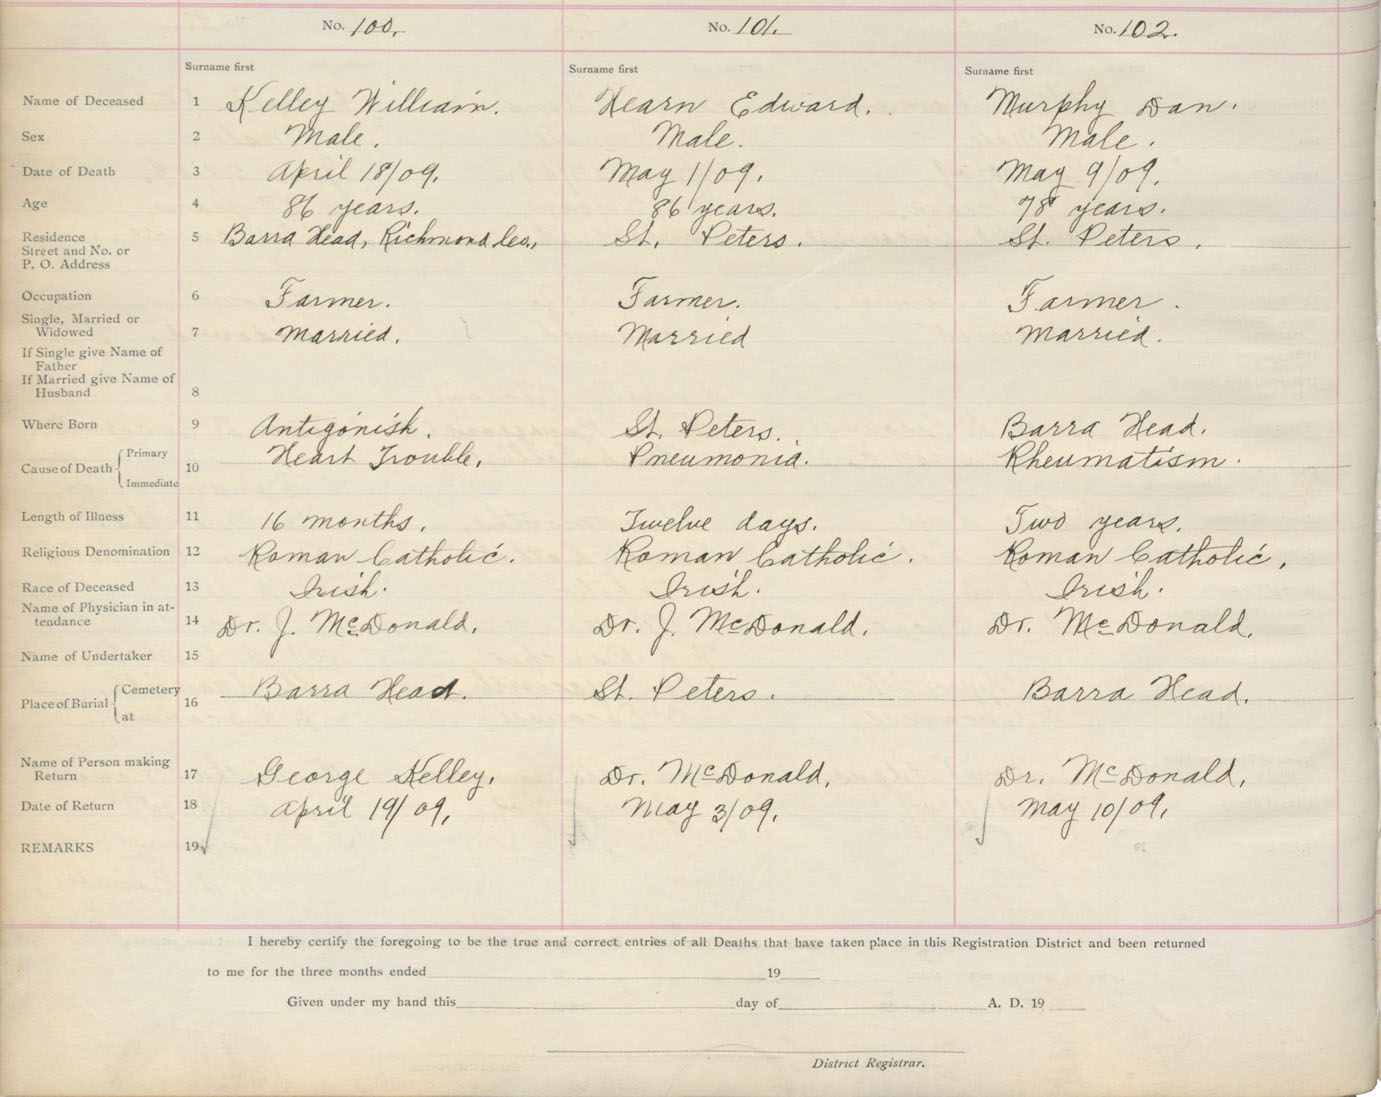 No. 100. No. 101. No. 102.
Surname first Surname first Surname first
Name of Deceased 1 Kelley William. Hearn Edward. Murphy Dan.
Sex 2 Male. Male. Male.
Date of Death 3 April 18/09. May 1/09. May 9/09.
Age 4 86 years. 86 years. 78 years.
Residence 5 Barra Head, Richmond Co., St. Peters. St. Peters.
Street and No. or
P. O. Address
Occupation 6 Farmer. Farmer. Farmer.
Single, Married or
Widowed 7 Married. Married Married.
If Single give Name of
Father
If Married give Name of
Husband 8
Where Born 9 Antigonish. St. Peters. Barra Head.
Cause of Death Primary 10 Heart Trouble. Pneumonia. Rheumatism.
Immediate
Length of Illness 11 16 months. Twelve days. Two years.
Religious Denomination 12 Roman Catholic. Roman Catholic. Roman Catholic.
Race of Deceased 13 Irish. Irish. Irish.
Name of Physician in at-
tendance 14 Dr. J. McDonald. Dr. J. McDonald. Dr. McDonald.
Name of Undertaker 15
Place of Burial Cemetery 16 Barra Head. St. Peters. Barra Head.
at
Name of Person making
Return 17 George Kelley. Dr. McDonald. Dr. McDonald.
Date of Return 18 April 19/09. May 3/09. May 10/09.
REMARKS 19
I hereby certify the foregoing to be the true and correct entries of all Deaths that have taken place in this Registration District and been returned
to me for the three months ended 19
Given under my hand this day of A. D. 19
District Registrar.